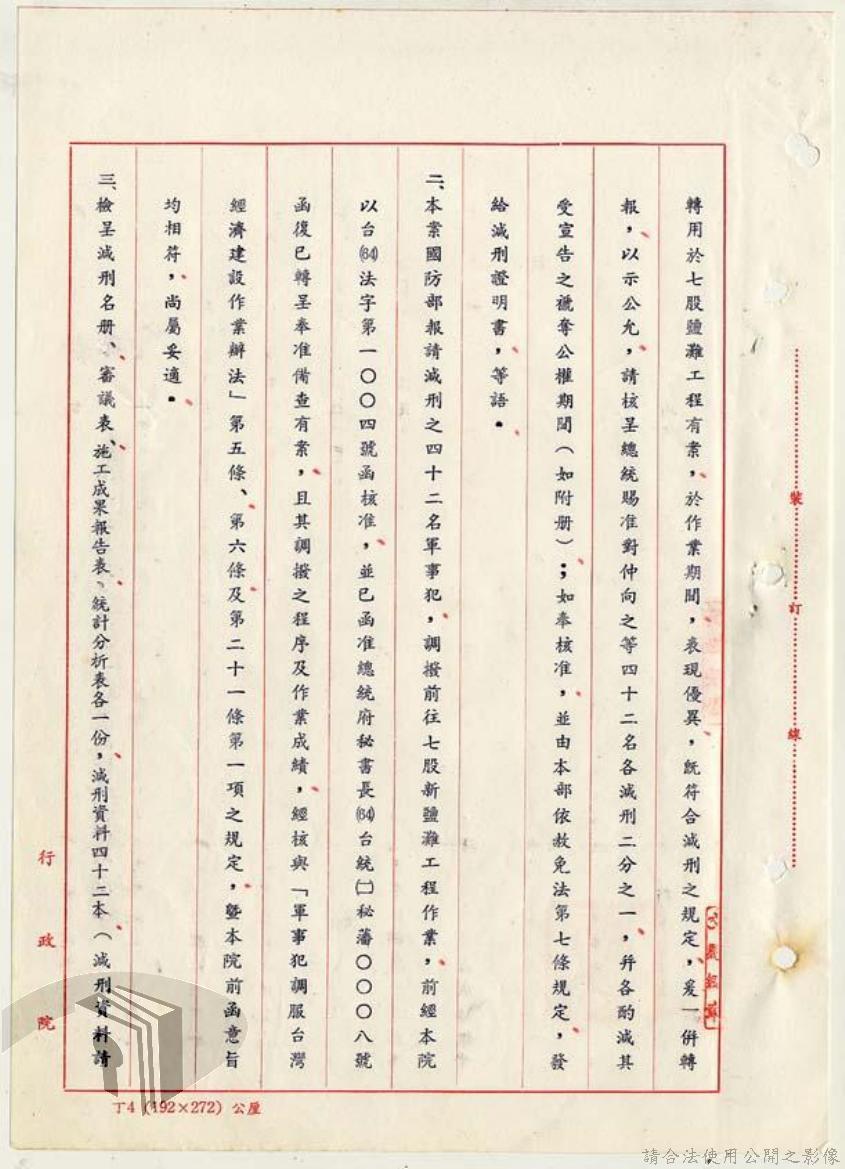 轉用於七股鹽灘工程有案，於作業期間，表現優異，既符合減刑之規定，爰一併轉
報，以示公允，請核呈總統賜准對仲向之等四十二名各減刑二分之一，幷各酌減其
受宣告之褫奪公權期間（如附册）；如奉核准，並由本部依赦免法第七條規定，發
給減刑證明書，等語。
二、本案國防部報請減刑之四十二名軍事犯，調撥前往七股新鹽灘工程作業，前經本院
以台(64)法字第一〇〇四號函核准，並已函准總統府秘書長(64)台統㈡秘藩〇〇〇八號
函復已轉呈奉准備查有案，且其調撥之程序及作業成績，經核與「軍事犯調服台灣
經濟建設作業辦法」第五條、第六條及第二十一條第一項之規定，暨本院前函意旨
均相符，尚屬妥適。
三、檢呈減刑名册、審議表、施工成果報告表、統計分析表各一份，減刑資料四十二本（減刑資料請
裝
訂
線
行政院
丁4（192×272）公厘
請合法使用公開之影像